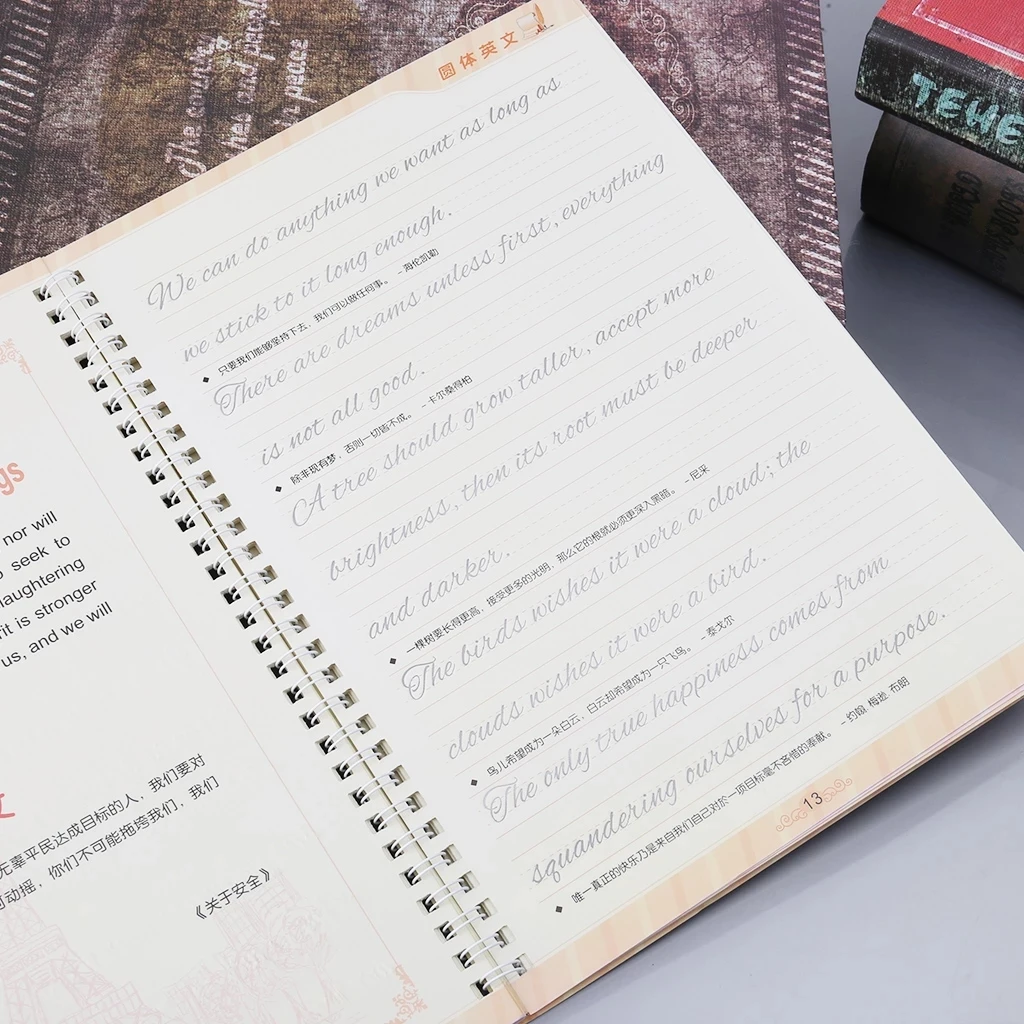 圆体英文
We can do anything we want as long as
we stick to it long enough.
只要我们能够坚持下去，我们可以做任何事。 -海伦凯勒
There are dreams unless first, everything
is not all good.
除非现有梦，否则一切皆不成。 -卡尔桑得柏
A tree should grow taller, accept more
brightness, then its root must be deeper
and darker.
一棵树要长得更高，接受更多的光明，那么它的根就必须更深入黑暗。 -尼采
The birds wishes it were a cloud; the
clouds wishes it were a bird.
鸟儿希望成为一朵白云，白云却希望成为一只飞鸟。 -泰戈尔
The only true happiness comes from
squandering ourselves for a purpose.
唯一真正的快乐乃是来自我们自己对於一项目标毫不吝惜的奉献。 -约翰 梅逊 布朗
13
gs
nor will
seek to
laughtering
it is stronger
us, and we will
文
无辜平民达成目标的人，我们要对
动摇，你们不可能拖垮我们，我们
《关于安全》
TEWE